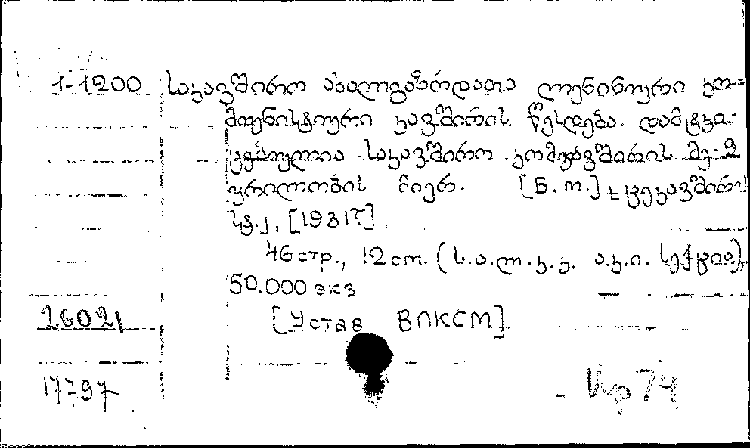 1-1200 საკავშირო ახალგაზრდათა ლენინური კო-
მუნისტური კავშირის წესდება. დამტკი-
ცებულია საკავშირო კომკავშირის მე-9
ყრილობის მიერ. [ნ.ო.], ცეკავშირი
ს.კ., [1931?]
46 стр., 12 cm. (ს.ა.ლ.კ.კ. ა.კ.ი. სექცია).
50.000 экз
26021 [Устав ВЛКСМ]
17797